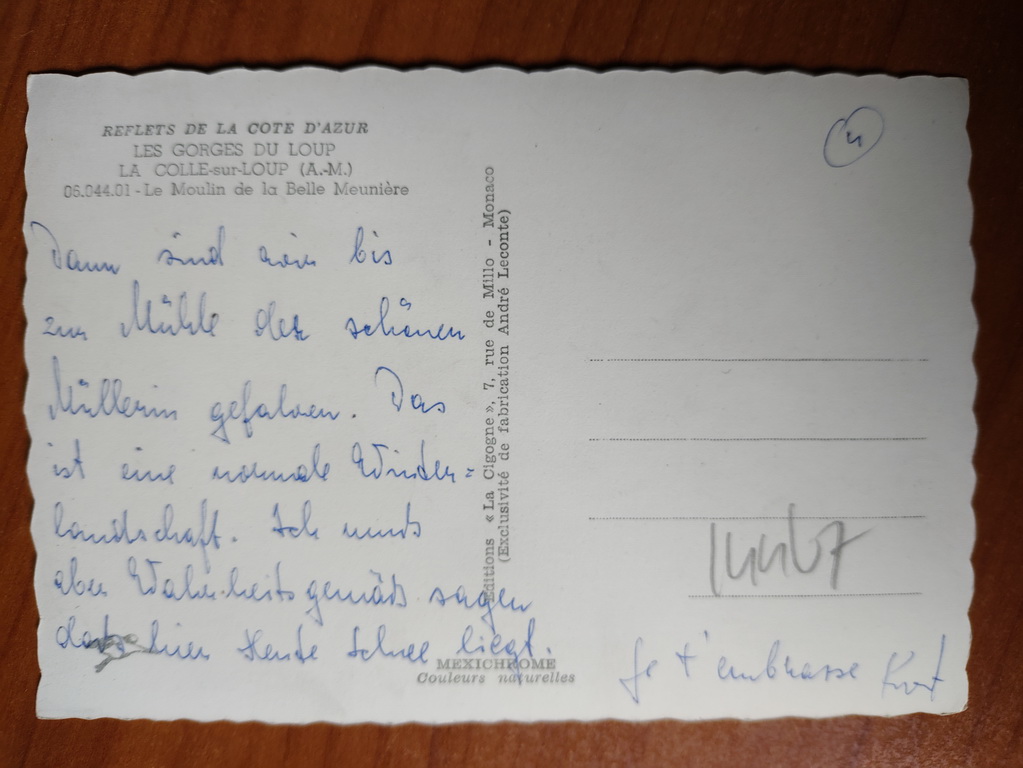 REFLETS DE LA COTE D'AZUR
LES GORGES DU LOUP
LA COLLE-sur-LOUP (A.-M.)
06.044.01 - Le Moulin de la Belle Meunière
Dann sind wir bis
zur Mühle der schönen
Müllerin gefahren. Das
ist eine normale Winter=
landschaft. Ich muß
aber Wahrheitsgemäß sagen
daß hier Heute Schnee liegt.
Editions « La Cigogne », 7, rue de Millo - Monaco
(Exclusivité de fabrication André Leconte)
MEXICHROME
Couleurs naturelles
4
Je t'embrasse Kurt